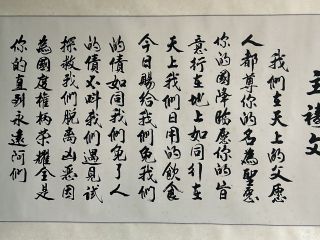 主禱文
我們在天上的父愿
人都尊你的名為聖愿
你的國降臨愿你的旨
意行在地上如同行在
天上我們日用的飲食
今日賜給我們免我們
的債如同我們免了人
的債不叫我們遇見試
探救我們脫離凶惡因
為國度權柄榮耀全是
你的直到永遠阿們